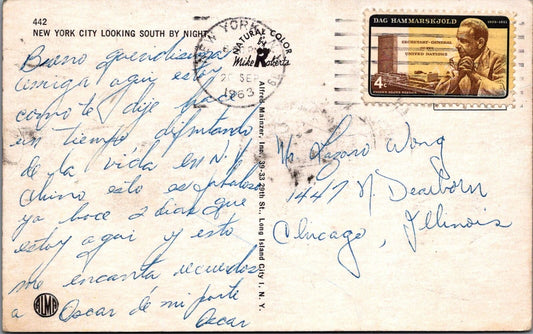 442
NEW YORK CITY LOOKING SOUTH BY NIGHT
NEW YORK
SEP
1963
NATURAL COLOR
Mike Roberts
DAG HAMMARSKJOLD
SECRETARY-GENERAL
OF THE
UNITED NATIONS
4¢
Bueno queridisimo
amigo aqui estoy
como te dije hace
un tiempo disfrutando
de la vida en N.Y.
Chino esto es
ya hace 2 dias que
estoy aqui y esto
me encanta recuerdos
a Oscar de mi parte
Oscar
Alfred Mainzer, Inc., 39-33 29th St., Long Island City 1, N. Y.
ALMA
Lazaro Wong
1447 N. Dearborn
Chicago, Illinois